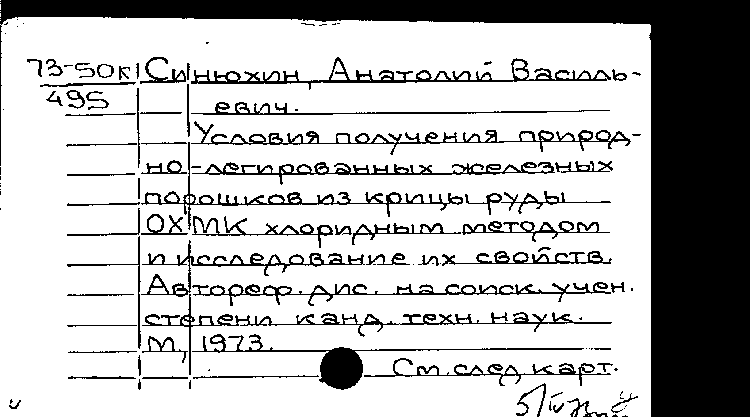 73-50к Синюхин, Анатолий Василь-
495 евич.
Условия получения природ-
но-легированных железных
порошков из крицы руды
ОХМК хлоридным методом
и исследование их свойств.
Автореф. дис. на соиск. учен.
степени канд. техн. наук.
М, 1973.
См. след карт.